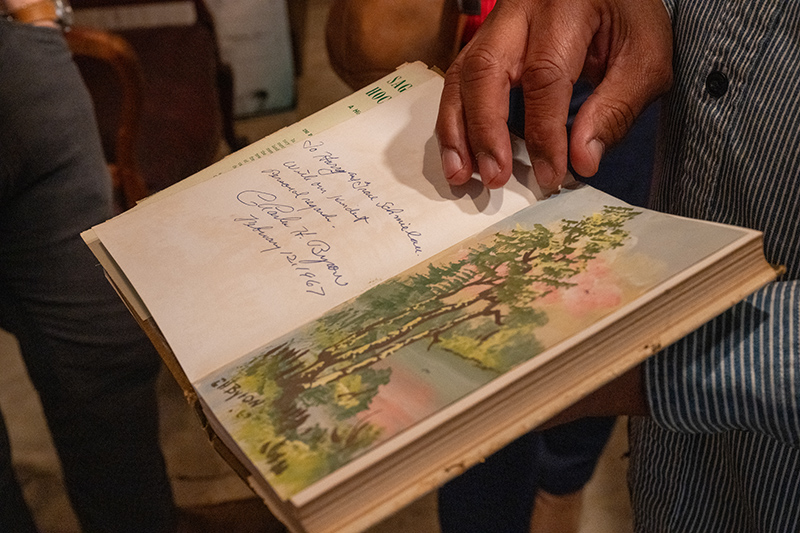 SAG
HOC
To Harry and Fran Schmickau
With our kindest
Personal regard.
Charles H. Byron
February 12, 1967
C.H.BYRON